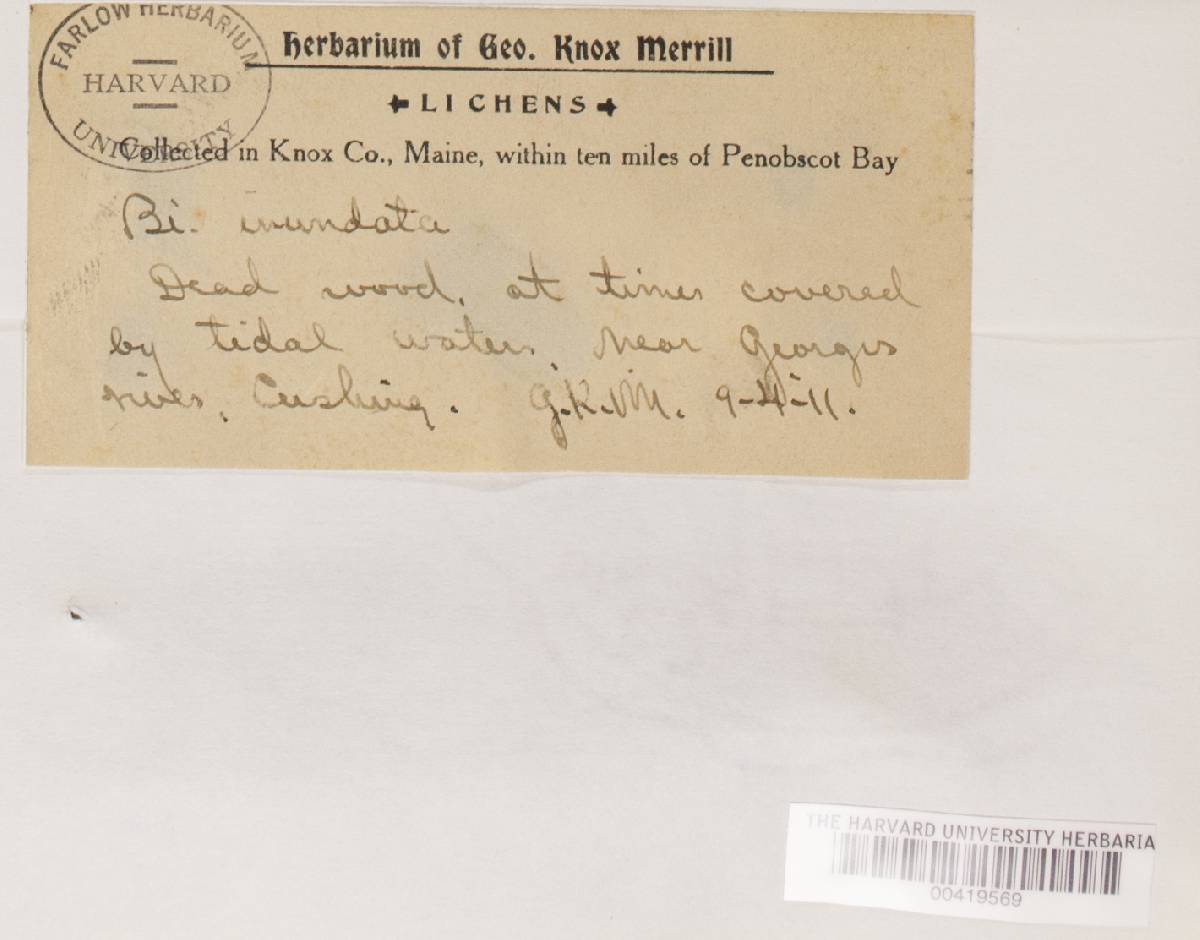 FARLOW HERBARIUM
HARVARD
UNIVERSITY
Herbarium of Geo. Knox Merrill
LICHENS
Collected in Knox Co., Maine, within ten miles of Penobscot Bay
Bi. inundata
Dead wood, at times covered
by tidal waters, Near Georges
river, Cushing. G.K.M. 9-4-11.
THE HARVARD UNIVERSITY HERBARIA
00419569